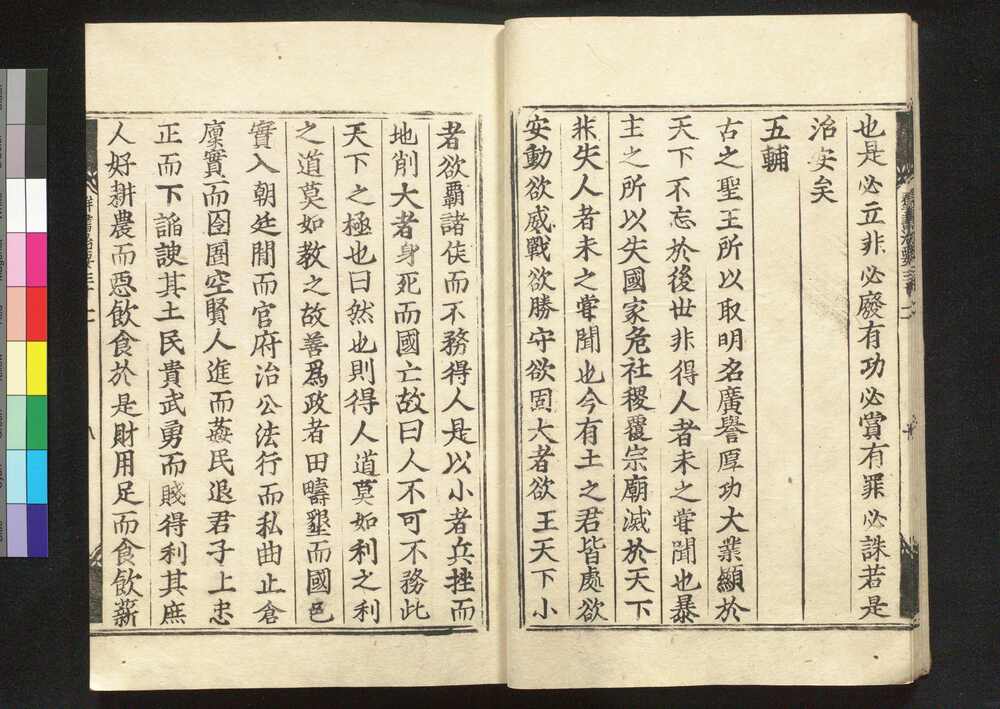 也是必立非必廢有功必賞有罪必誅若是
治安矣
五輔
古之聖王所以取明名廣譽厚功大業顯於
天下不忘於後世非得人者未之嘗聞也暴
主之所以失國家危社稷覆宗廟滅於天下
非失人者未之嘗聞也今有土之君皆處欲
安動欲威戰欲勝守欲固大者欲王天下小
者欲覇諸侯而不務得人是以小者兵挫而
地削大者身死而國亡故曰人不可不務此
天下之極也曰然也則得人道莫如利之利
之道莫如教之故善爲政者田疇墾而國邑
實入朝廷閒而官府治公法行而私曲止倉
廩實而囹圄空賢人進而姦民退君子上忠
正而下諂諛其土民貴武勇而賤得利其庶
人好耕農而惡飲食於是財用足而食飲薪
群書治要三十二